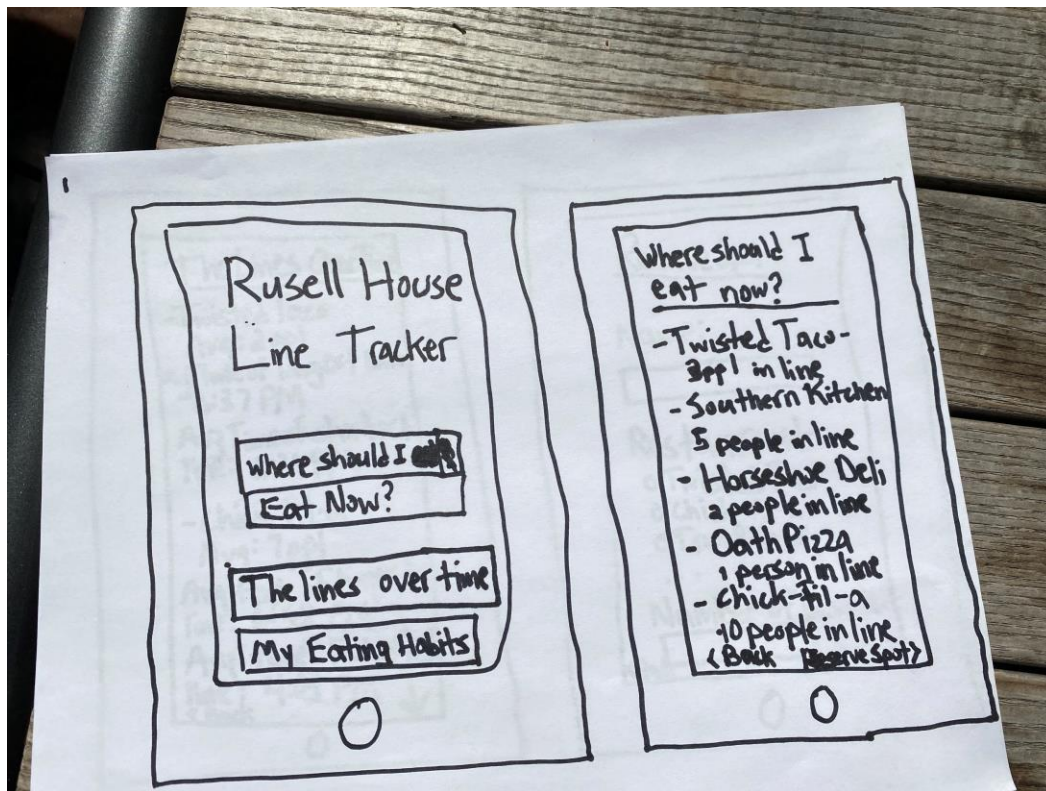 1
Rusell House
Line Tracker
Where should I
Eat Now?
The lines over time
My Eating Habits
Where should I
eat now?
- Twisted Taco -
3ppl in line
- Southern Kitchen
5 people in line
- Horseshoe Deli
2 people in line
- Oath Pizza
1 person in line
- Chick-fil-a
10 people in line
< Back Reserve Spot >